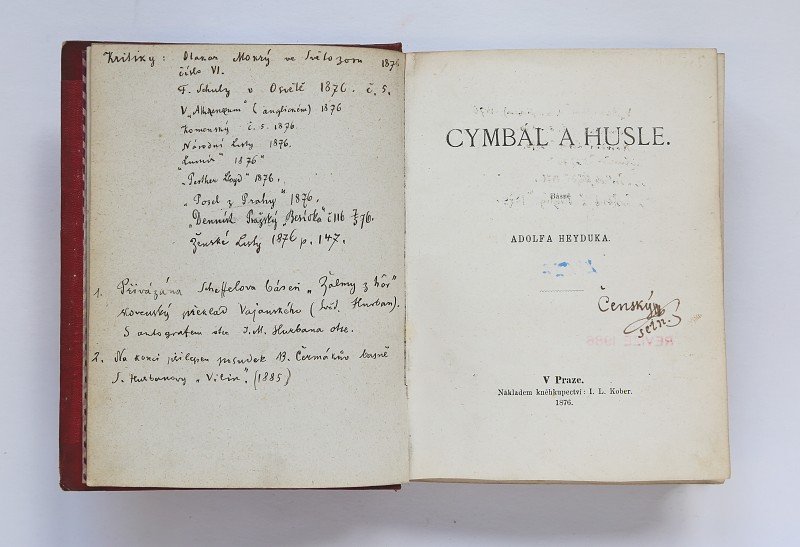 Kritiky: Otakar Mokrý ve Světozoru 1876
číslo VI.
F. Schulz v Osvětě 1876. č. 5.
V „Athenaeum" (anglickém) 1876
Komenský č. 5. 1876.
Národní Listy 1876.
"Lumír" 1876"
„Pesther Lloyd" 1876.
„Posel z Prahy" 1876.
„Denník Pražský „Beseda" č 116 7/5 76.
Ženské Listy 1876 p. 147.
1. Přivázána Scheffelova báseň „Žalmy z hôr"
slovenský překlad Vajanského (Svět. Hurban).
S autografem otce J. M. Hurbana
2. Na konci přilepen posudek B. Čermákův básně
S. Hurbanovy „Vilin". (1885)
CYMBÁL A HUSLE.
Básně
ADOLFA HEYDUKA.
Čenský
setn.
REVIZE 1986
V Praze.
Nákladem kněhkupectví: I. L. Kober.
1876.